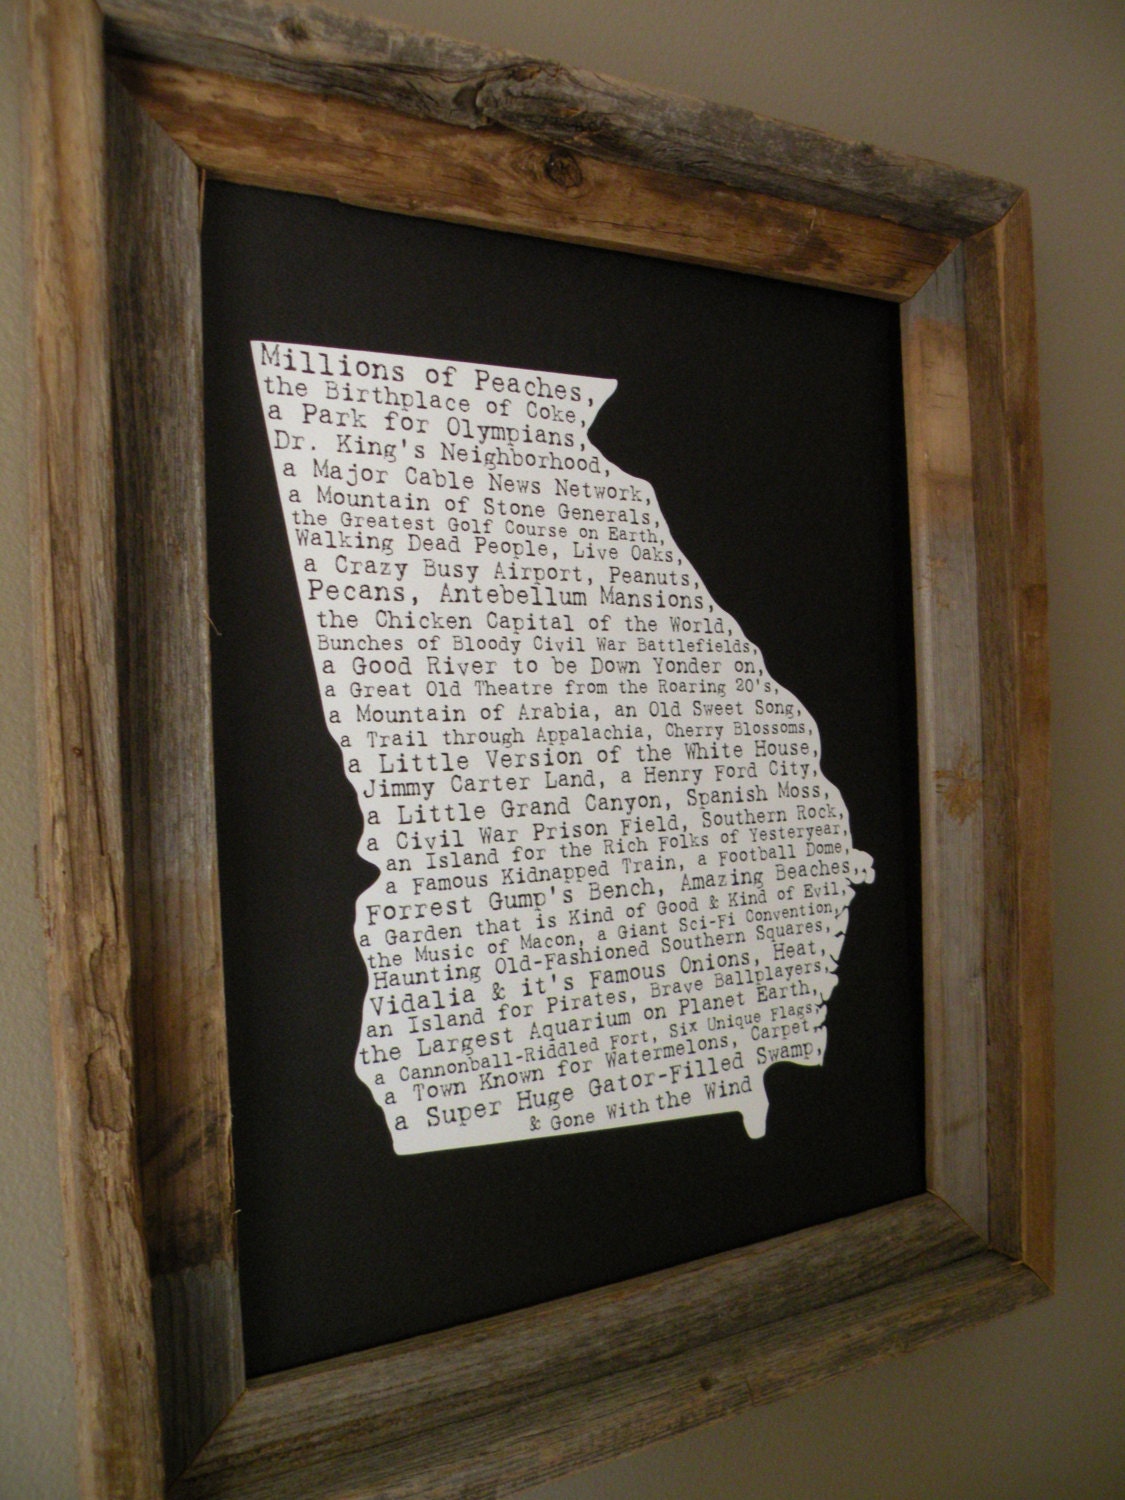 Millions of Peaches,
the Birthplace of Coke,
a Park for Olympians,
Dr. King's Neighborhood,
a Major Cable News Network,
a Mountain of Stone Generals,
the Greatest Golf Course on Earth,
Walking Dead People, Live Oaks,
a Crazy Busy Airport, Peanuts,
Pecans, Antebellum Mansions,
the Chicken Capital of the World,
Bunches of Bloody Civil War Battlefields,
a Good River to be Down Yonder on,
a Great Old Theatre from the Roaring 20's,
a Mountain of Arabia, an Old Sweet Song,
a Trail through Appalachia, Cherry Blossoms,
a Little Version of the White House,
Jimmy Carter Land, a Henry Ford City,
a Little Grand Canyon, Spanish Moss,
a Civil War Prison Field, Southern Rock,
an Island for the Rich Folks of Yesteryear,
a Famous Kidnapped Train, a Football Dome,
Forrest Gump's Bench, Amazing Beaches,
a Garden that is Kind of Good & Kind of Evil,
the Music of Macon, a Giant Sci-Fi Convention,
Haunting Old-Fashioned Southern Squares,
Vidalia & it's Famous Onions, Heat,
an Island for Pirates, Brave Ballplayers,
the Largest Aquarium on Planet Earth,
a Cannonball-Riddled Fort, Six Unique Flags,
a Town Known for Watermelons, Carpet,
a Super Huge Gator-Filled Swamp,
& Gone With the Wind